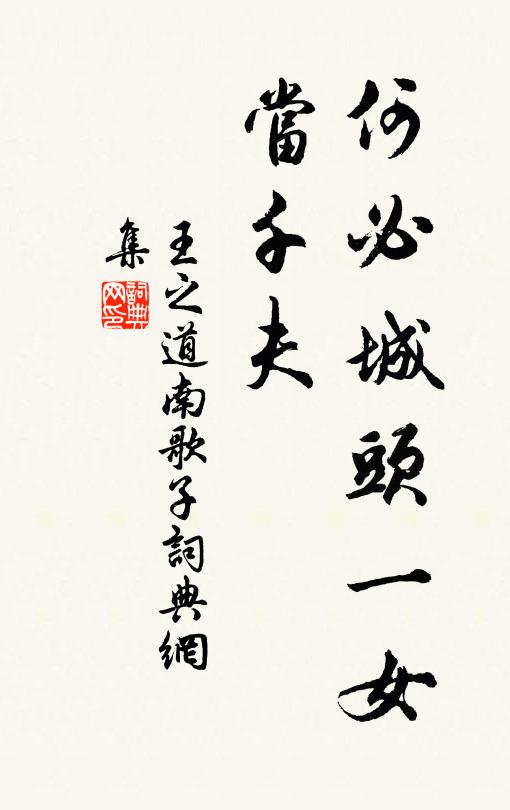 何必城頭一女
當千夫
王之道南歌子詞典網
集
詞典
网印